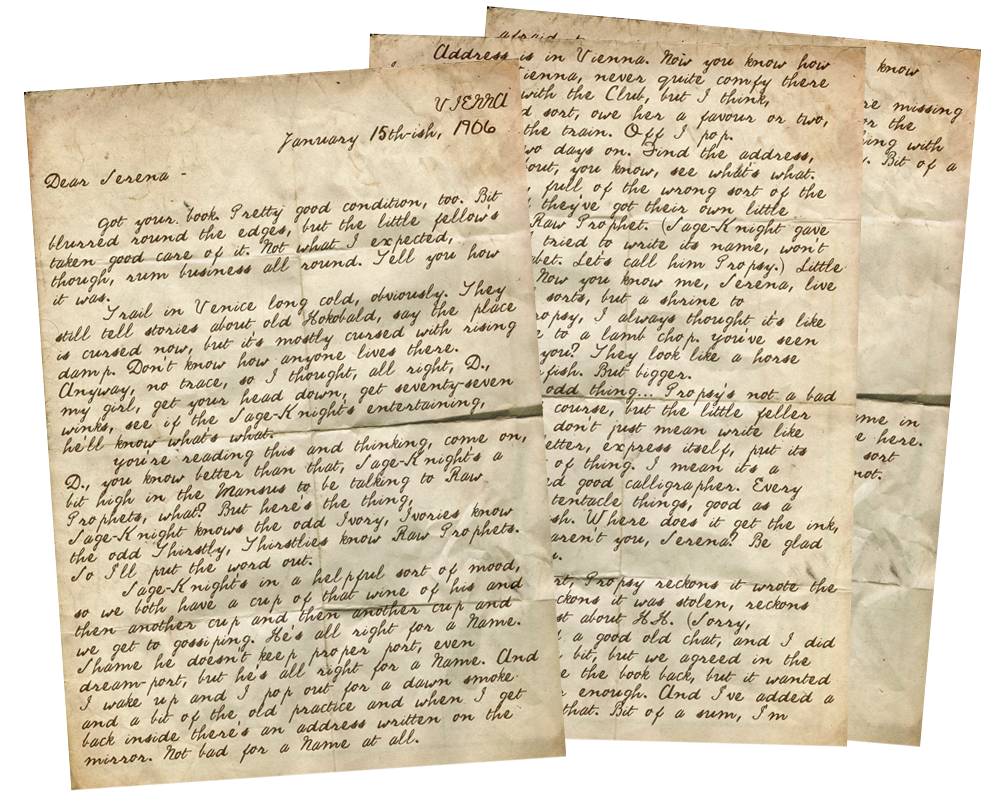 VIENNA
January 15th-ish, 1906
Dear Serena -
Got your book. Pretty good condition, too. Bit
blurred round the edges, but the little fellow's
taken good care of it. Not what I expected,
though, rum business all round. Tell you how
it was.
Trail in Venice long cold, obviously. They
still tell stories about old Hokobald, say the place
is cursed now, but it's mostly cursed with rising
damp. Don't know how anyone lives there.
Anyway, no trace, so I thought, all right, D.,
my girl, get your head down, get seventy-seven
winks, see if the Sage-Knight's entertaining,
he'll know what's what.
You're reading this and thinking, come on,
D., you know better than that, Sage-Knight's a
bit high in the Mansus to be talking to Raw
Prophets, what? But here's the thing,
Sage-Knight knows the odd Ivory, Ivories know
the odd Thirstly, Thirstlies know Raw Prophets.
So I'll put the word out.
Sage-Knight's in a helpful sort of mood,
so we both have a cup of that wine of his and
then another cup and then another cup and
we get to gossiping. He's all right for a Name.
Shame he doesn't keep proper port, even
dream-port, but he's all right for a Name. And
I wake up and I pop out for a dawn smoke
and a bit of the old practice and when I get
back inside there's an address written on the
mirror. Not bad for a Name at all.
Address is in Vienna. Now you know how
Vienna, never quite comfy there
with the Club, but I think,
sort, owe her a favour or two,
the train. Off I pop.
two days on. Find the address,
about, you know, see what's what.
full of the wrong sort of the
they've got their own little
Raw Prophet. (Sage-Knight gave
tried to write its name, won't
Let's call him Propsy.) Little
Now you know me, Serena, live
sorts, but a shrine to
Propsy, I always thought it's like
to a lamb chop. You've seen
you? They look like a horse
fish. But bigger.
odd thing... Propsy's not a bad
course, but the little feller
don't just mean write like
letter, express itself, put its
of thing. I mean it's a
good calligrapher. Every
tentacle things, good as a
Where does it get the ink,
aren't you, Serena? Be glad
Propsy reckons it wrote the
reckons it was stolen, reckons
about H.H. (Sorry,
a good old chat, and I did
bit, but we agreed in the
the book back, but it wanted
enough. And I've added a
that. Bit of a sum, I'm
afraid
know
missing
or the
with
Bit of a
in
here.
sort
not.